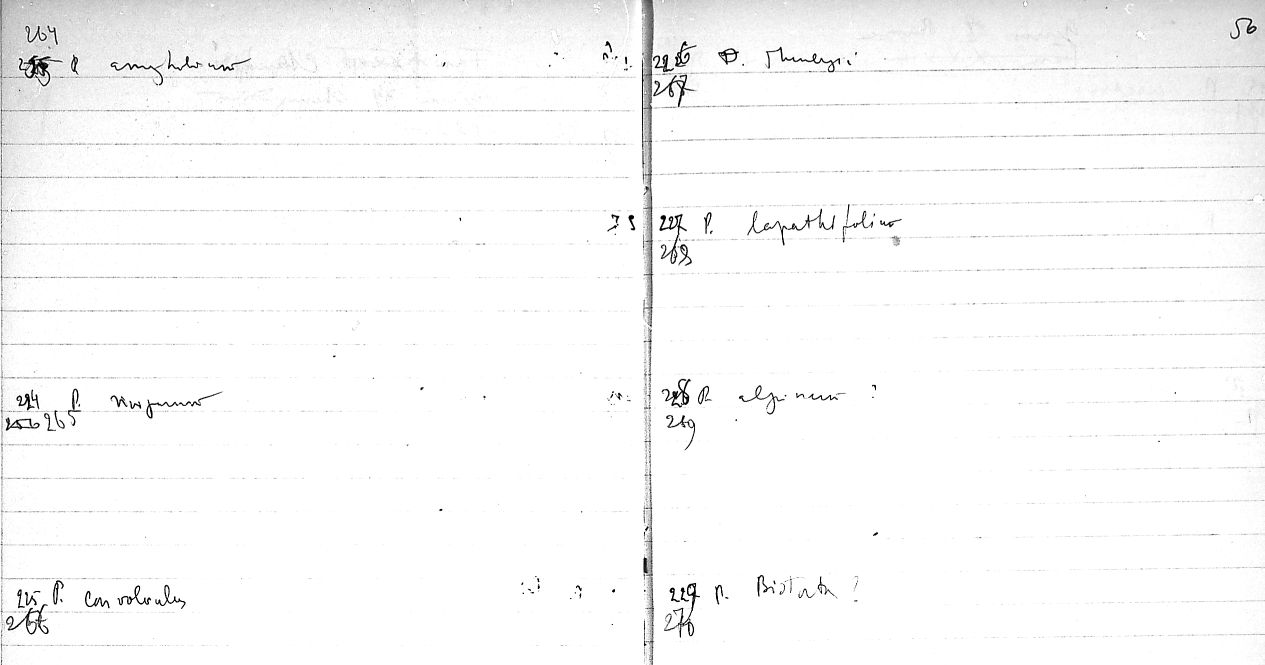 264
P. amphibium
224 P.
256 265
225 P. Convolvulus
266
56
226 P. Thunbergii
267
227 P. lapathifolium
268
228 P. alpinum ?
269
229 P. Bistorta ?
270